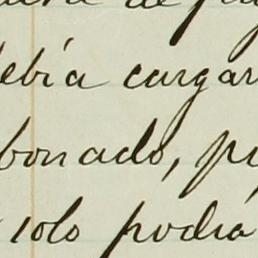 de
ebía cargar
bonado, p
solo podía